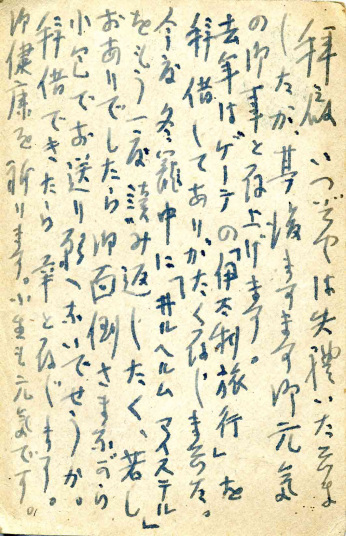 拝啓 いつぞやは失禮いたしま
したが、其後ますます御元氣
の御事と存上げます。
去年はゲーテの「伊太利旅行」を
拝借してありがたく存じました。
今度 冬籠中に「ヰルヘルム マイステル」
をもう一度讀み返したく、若し
おありでしたら御面倒さまながら
小包でお送り願へないでせうか。
拝借できたら幸と存じます。
御健康を祈ります。小生も元氣です。